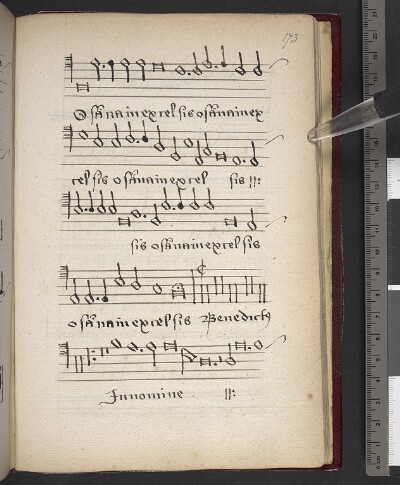 173
O sāna in excelsis osāna in ex
celsis osāna in excel sis :||:
sis osāna in excelsis
osāna in excelsis Benedict9
In nomine :||: